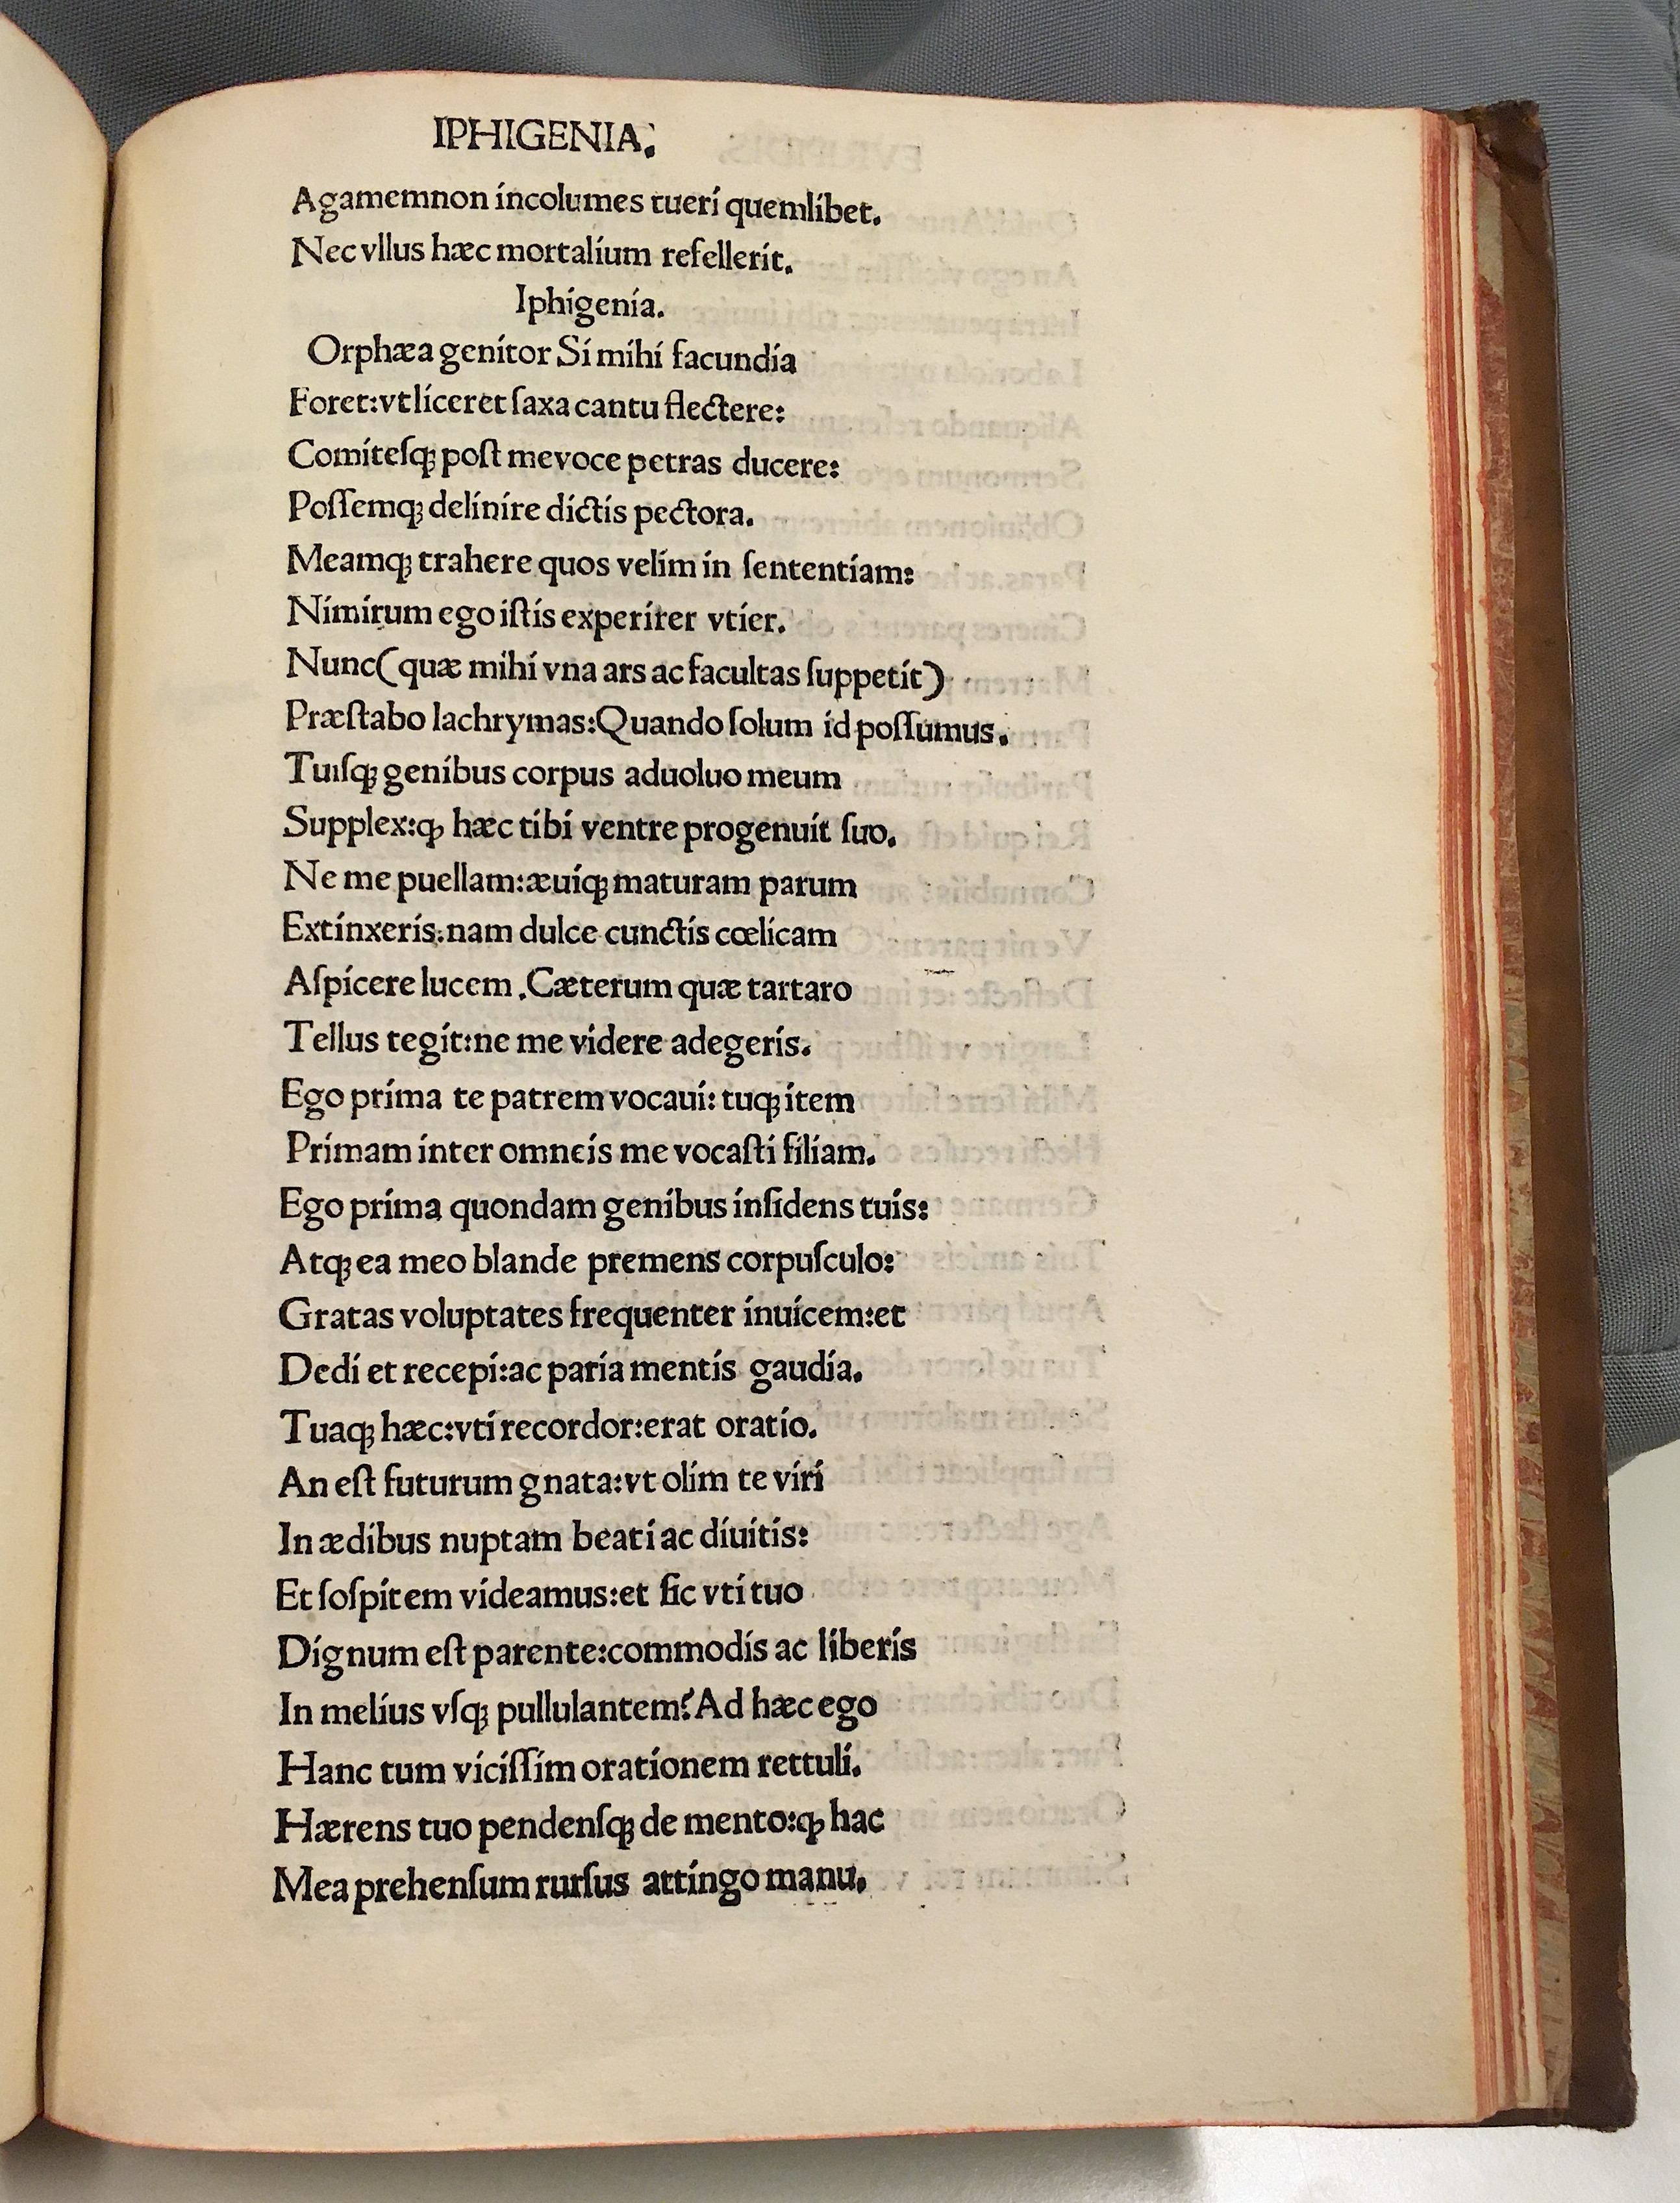 IPHIGENIA.
Agamemnon incolumes tueri quemlibet.
Nec vllus hæc mortalium refellerit.
Iphigenia.
Orphæa genitor Si mihi facundia
Foret:vt liceret ſaxa cantu flectere:
Comiteſqꝫ poſt me voce petras ducere:
Poſſemqꝫ delinire dictis pectora.
Meamqꝫ trahere quos velim in ſententiam:
Nimirum ego iſtis experirer vtier.
Nunc(quæ mihi vna ars ac facultas ſuppetit)
Præſtabo lachrymas:Quando ſolum id poſſumus.
Tuiſqꝫ genibus corpus aduoluo meum
Supplex:ꝙ hæc tibi ventre progenuit ſuo.
Ne me puellam:æuiqꝫ maturam parum
Extinxeris:nam dulce cunctis cœlicam
Aſpicere lucem.Cæterum quæ tartaro
Tellus tegit:ne me videre adegeris.
Ego prima te patrem vocaui: tuqꝫ item
Primam inter omneis me vocaſti filiam.
Ego prima quondam genibus inſidens tuis:
Atqꝫ ea meo blande premens corpuſculo:
Gratas voluptates frequenter inuicem:et
Dedi et recepi:ac paria mentis gaudia.
Tuaqꝫ hæc:vti recordor:erat oratio.
An eſt futurum gnata:vt olim te viri
In ædibus nuptam beati ac diuitis:
Et ſoſpitem videamus:et ſic vti tuo
Dignum eſt parente:commodis ac liberis
In melius vſqꝫ pullulantem?Ad hæc ego
Hanc tum viciſſim orationem rettuli.
Hærens tuo pendenſqꝫ de mento:ꝙ hac
Mea prehenſum rurſus attingo manu.